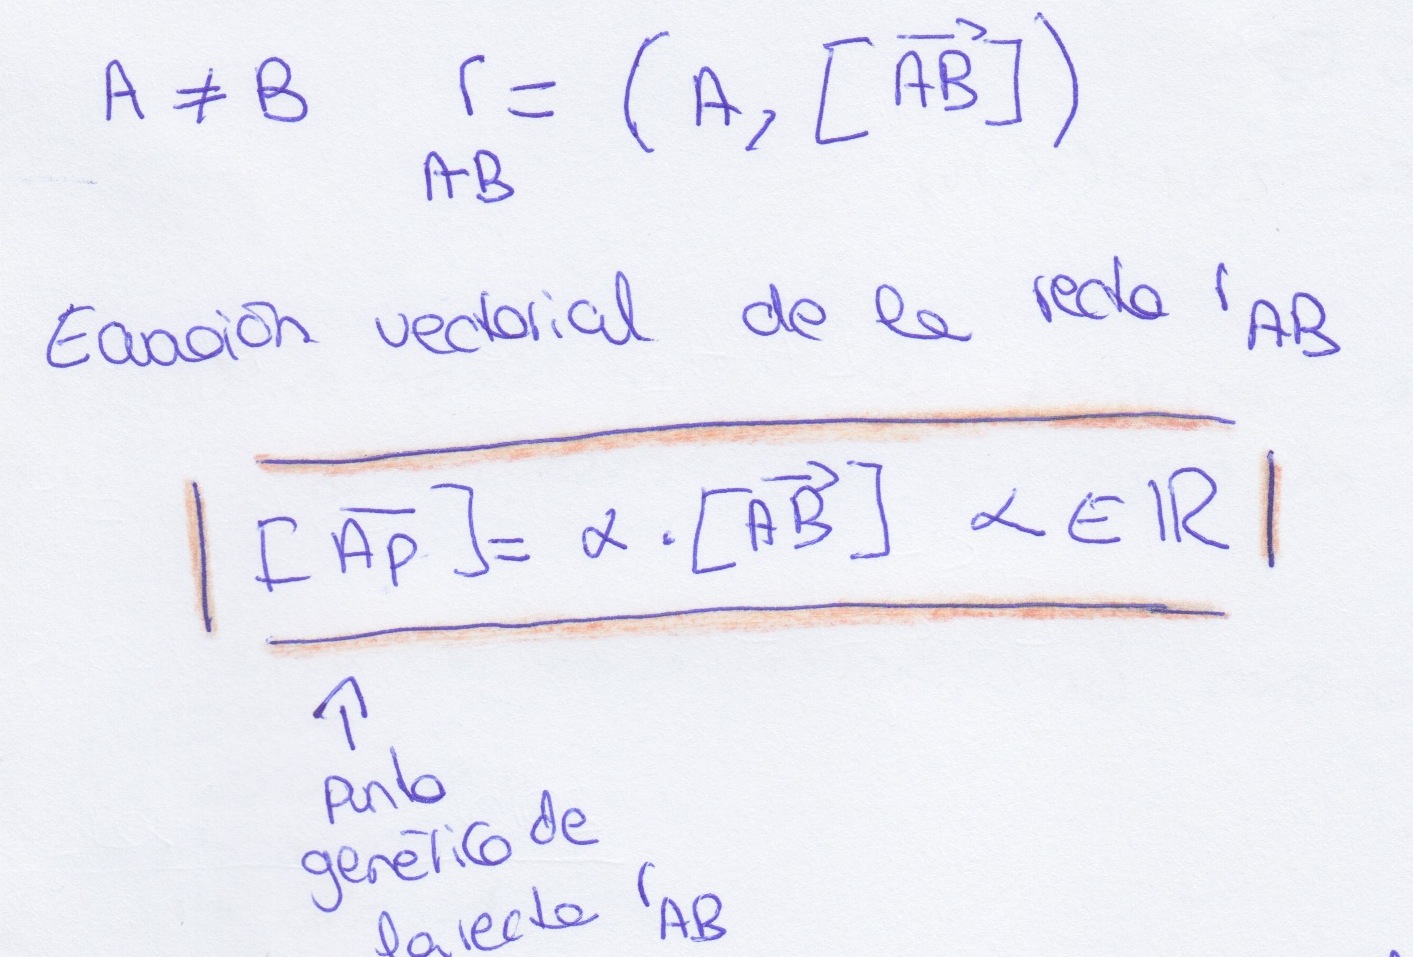 A ≠ B r = (A, [AB→])
AB
Ecuación vectorial de la recta r AB
[AP] = α · [AB→] α ∈ ℝ
↑
punto
genérico de
la recta r AB